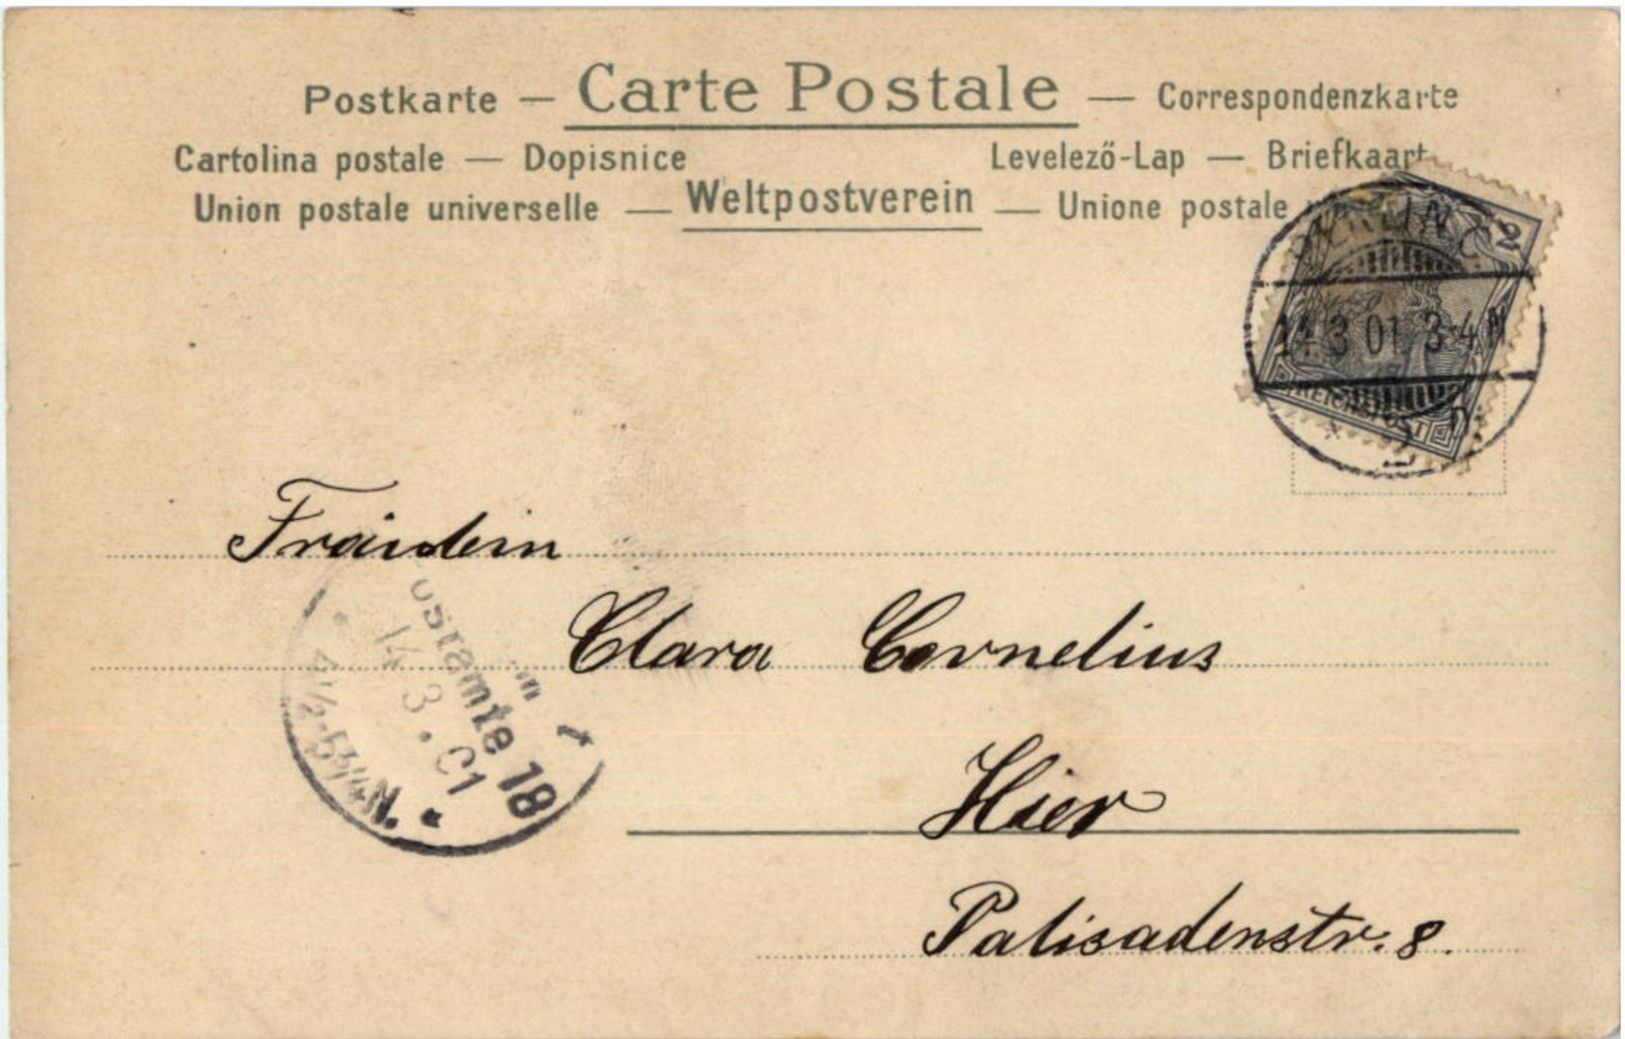 Postkarte — Carte Postale — Correspondenzkarte
Cartolina postale — Dopisnice Levelező-Lap — Briefkaart
Union postale universelle — Weltpostverein — Unione postale
BERLIN C.
2
14.3.01. 3-4N
REICHSPOST
Fräulein
Clara Cornelius
Hier
Palisadenstr. 8.
14 3.01
4½-5¾N.